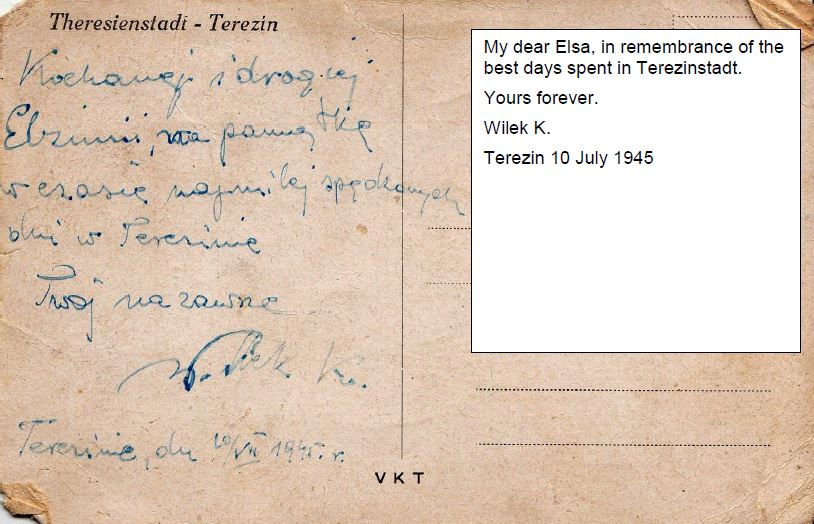 Theresienstadt - Terezin
Kochanej i drogiej
Elzimii, na pamiątkę
w czasie najmilej spędzonych
dni w Terezinie
Twój na zawsze
Wilek K.
Terezinie, dn 10/VII 1945 r.
VKT
My dear Elsa, in remembrance of the
best days spent in Terezinstadt.
Yours forever.
Wilek K.
Terezin 10 July 1945